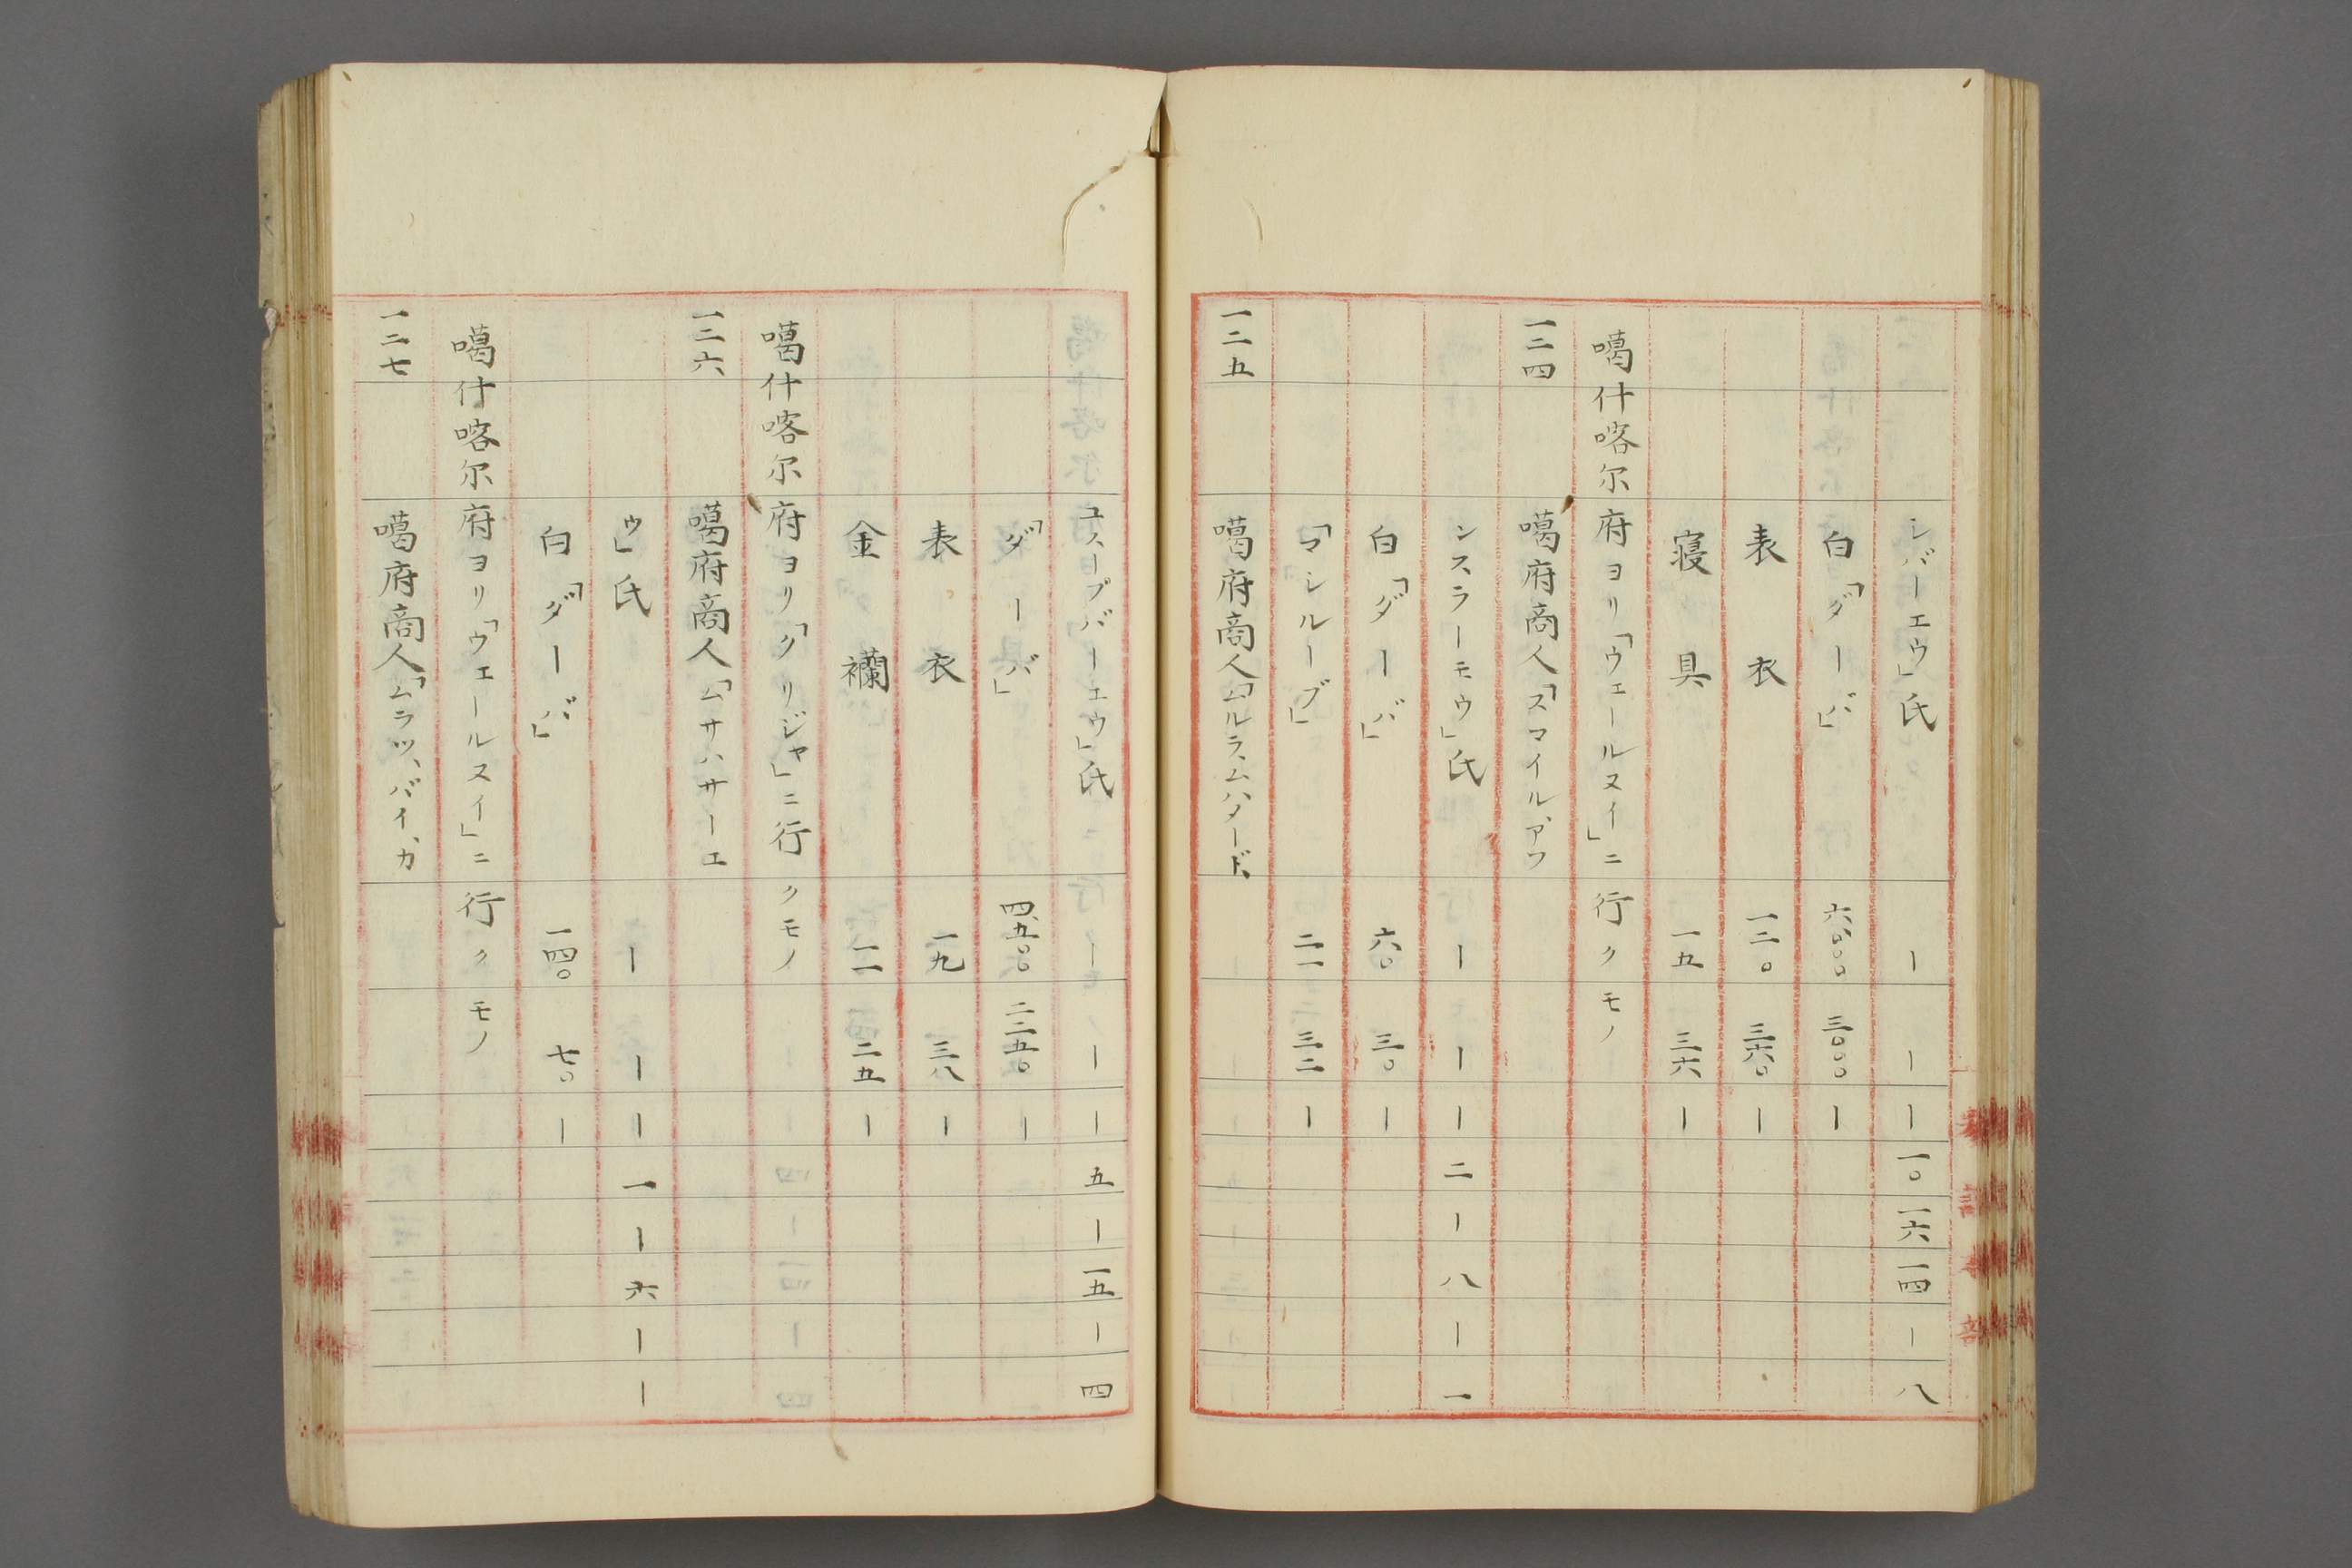 シバーエウ」氏 ー ー ー 一〇 一六 一四 ー 八
白「ダーバ」 六、〇〇〇 三〇〇〇 ー
表衣 一二〇 三六〇 ー
寝具 一五 三六 ー
噶什喀尔府ヨリ「ウェールヌイ」ニ行クモノ
一二四 噶府商人「スマイル、アフ
ンスラーモウ」氏 ー ー ー 二 ー 八 ー 一
白「ダーバ」 六〇 三〇 ー
「マシルーブ」 二一 三二 ー
一二五 噶府商人「ムルラ、ムハメード、
ユスーブバーエウ」氏 ー ー ー 五 ー 一五 ー 四
「ダーバ」 四、五〇〇 二二五〇 ー
表衣 一九 三八 ー
金襴 一一 二五 ー
噶什喀尔府ヨリ「クリジャ」ニ行クモノ
一二六 噶府商人「ムサハサーエ
ウ」氏 ー ー ー 一 ー 六 ー ー
白「ダーバ」 一四〇 七〇 ー
噶什喀尔府ヨリ「ウェールヌイ」ニ行クモノ
一二七 噶府商人「ムラツ、バイ、カ